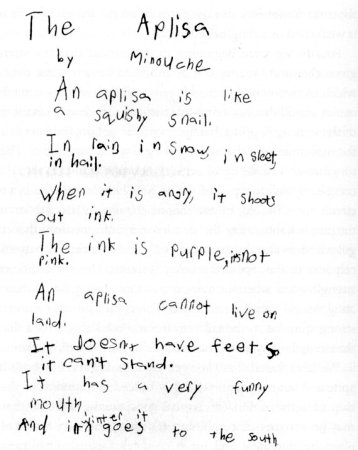 The Aplisa
by Minouche
An aplisa is like
a squishy snail.
In rain in snow, in sleet
in hail.
When it is angry, it shoots
out ink.
The ink is purple, its not
pink.
An aplisa cannot live on
land.
It doesn't have feet so
it can't stand.
It has a very funny
mouth
And in winter it goes to the south